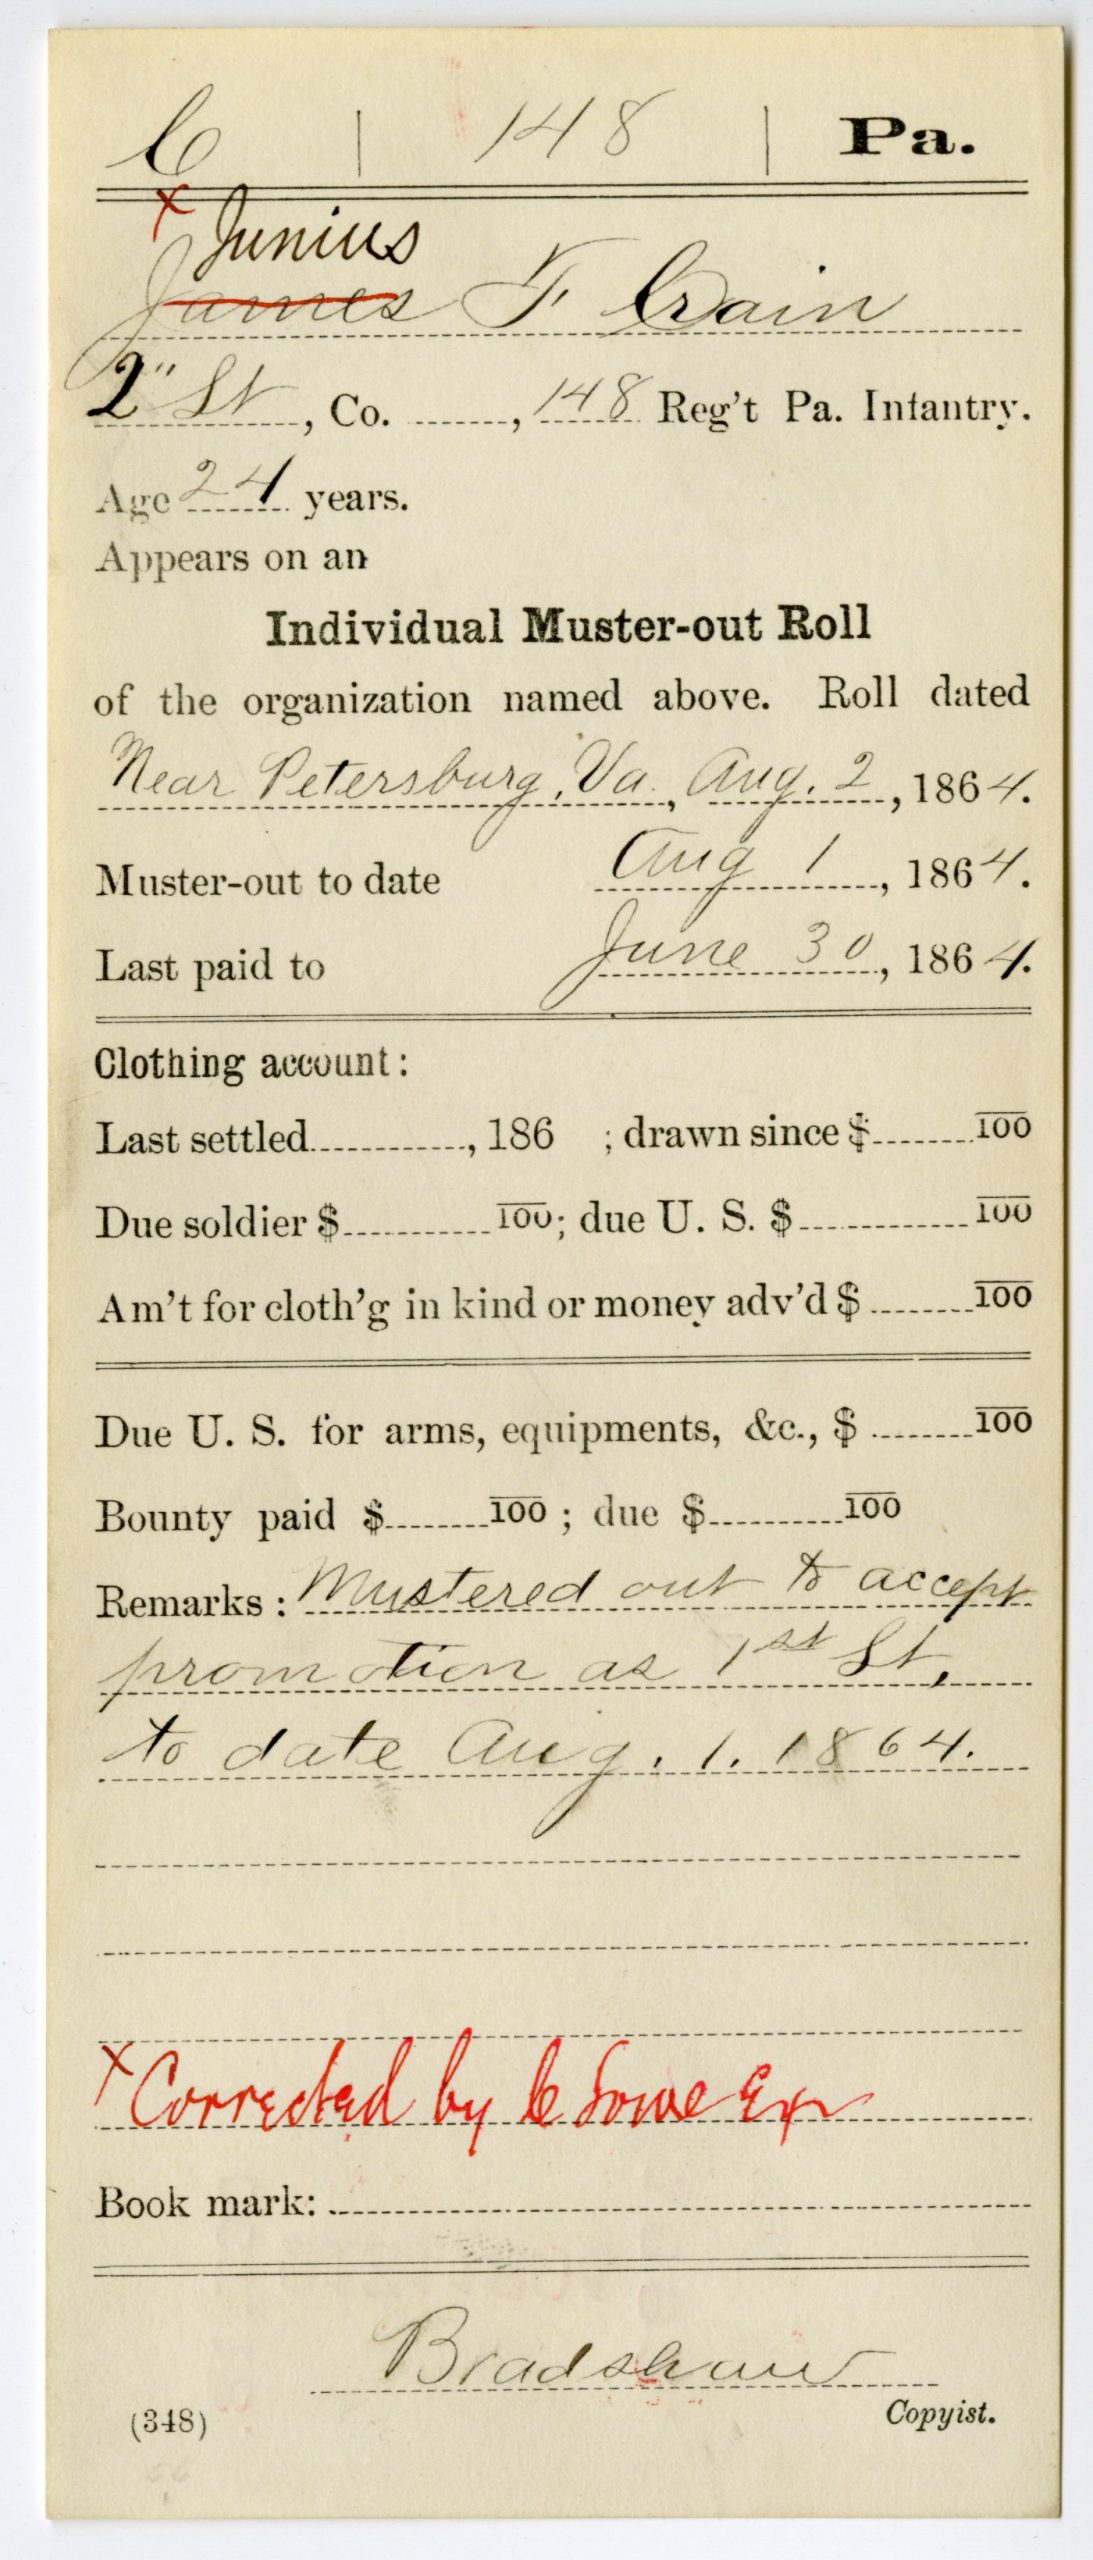 C | 148 | Pa.
x Junius
James F Crain
2" Lt, Co. ......, 148 Reg't Pa. Infantry.
Age 24 years.
Appears on an
Individual Muster-out Roll
of the organization named above. Roll dated
Near Petersburg, Va., Aug. 2, 1864.
Muster-out to date Aug 1, 1864.
Last paid to June 30, 1864.
Clothing account:
Last settled............, 186 ; drawn since $........100
Due soldier $...........100; due U. S. $.............100
Am't for cloth'g in kind or money adv'd $........100
Due U. S. for arms, equipments, &c., $........100
Bounty paid $........100; due $..........100
Remarks: Mustered out to accept
promotion as 1st Lt,
to date Aug. 1. 1864.
x Corrected by C
Book mark:
Bradshaw
(348) Copyist.